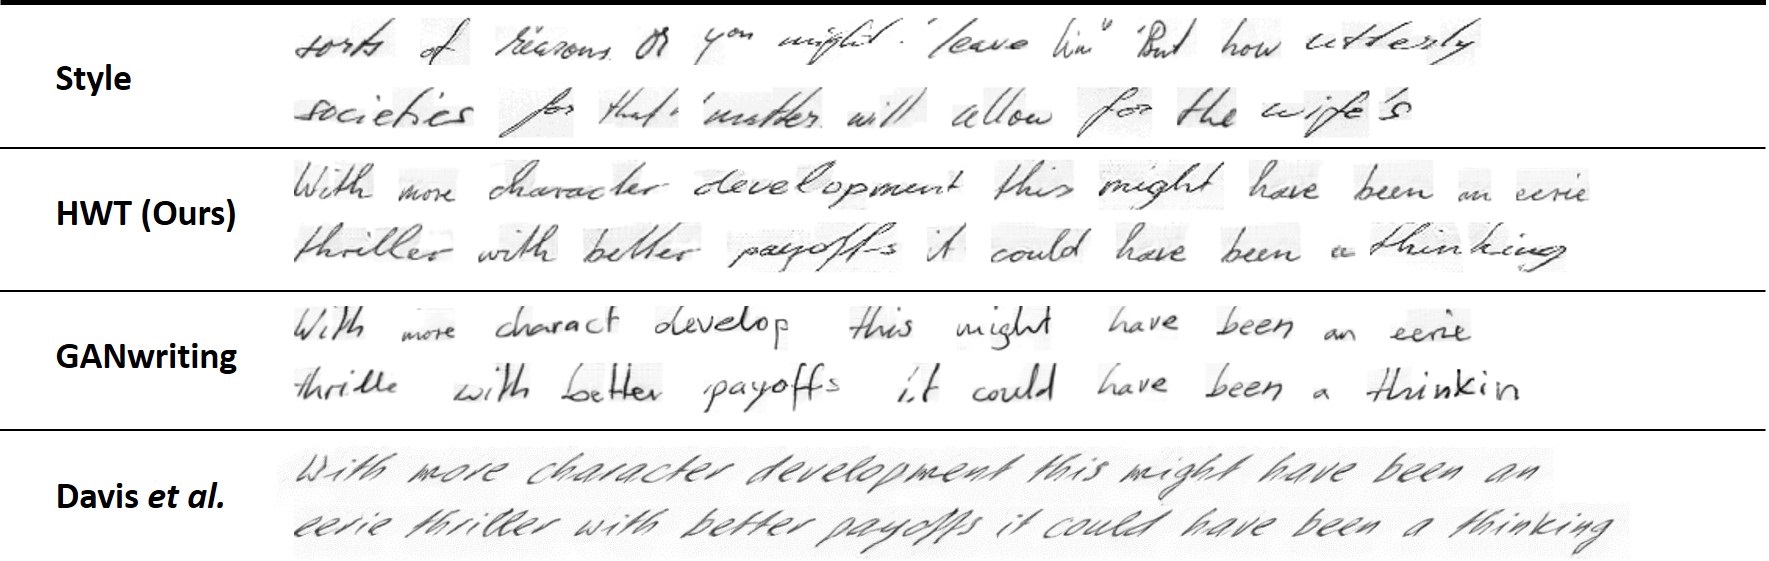 Style
sorts of reasons. Or you might. 'leave him" 'But how utterly
societies for that. 'matter will allow for the wife's
HWT (Ours)
With more character development this might have been an eerie
thriller with better payoffs it could have been a thinking
GANwriting
With more charact develop this might have been an eerie
thrille with better payoffs it could have been a thinkin
Davis et al.
With more character development this might have been an
eerie thriller with better payoffs it could have been a thinking